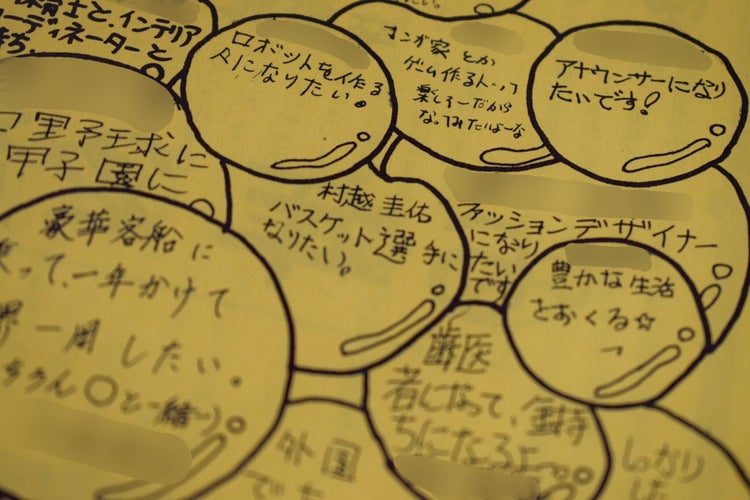 育士と、インテリア
ーディネーターと
ロボットを作る
人になりたい。
マンガ家 とか
ゲーム作る人って
楽しそーだから
なってみたいなーな
アナウンサーになり
たいです!
野球に
甲子園に
村越 圭佑
バスケット選手に
なりたい。
ファッションデザイナー
になり
たい
です
豊かな生活
をおくる☆
豪華客船に
って、一年かけて
一周したい。
と一緒に)
歯医
者になって、金持
ちになろよ
外国
しっかり